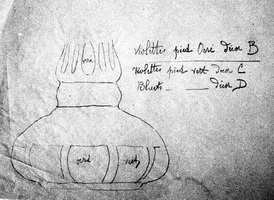 violettes pied Ocré dessn B
violettes pied vert dessn C
Bluets _ _____ dessn D
ocré
ocré
vert